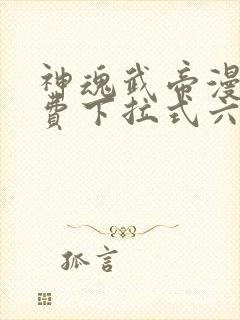 神魂武帝漫
费下拉式六
孤言